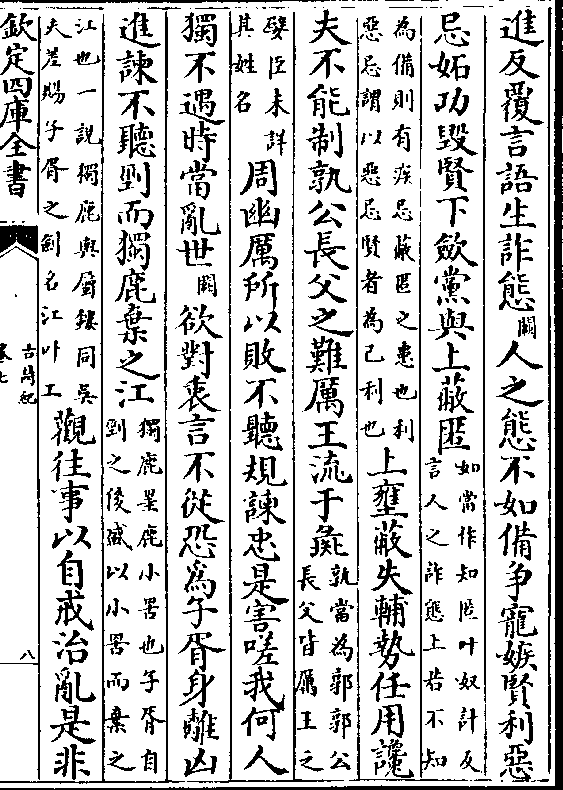 進反覆言語生詐態闕人之態不如備爭寵嫉賢利惡
忌妬功毀賢下斂黨與上蔽匿如當作知匿叶奴計反言人之詐態上若不知
為備則有疾忌蔽匿之患也利惡忌謂以惡忌賢者為己利也上壅蔽失輔勢任用讒
夫不能制孰公長父之難厲王流于彘孰當為郭郭公長父皆厲王之
嬖臣未詳其姓名周幽厲所以敗不聽規諫忠是害嗟我何人
獨不遇時當亂世闕欲對衷言不從恐為子胥身離凶
進諫不聽剄而獨鹿棄之江獨鹿罣鹿小罟也子胥自剄之後盛以小罟而棄之
江也一說獨鹿與屬鏤同吳夫差賜子胥之劍名江叶工觀往事以自戒治亂是非
欽定四庫全書
古詩紀
卷七
八